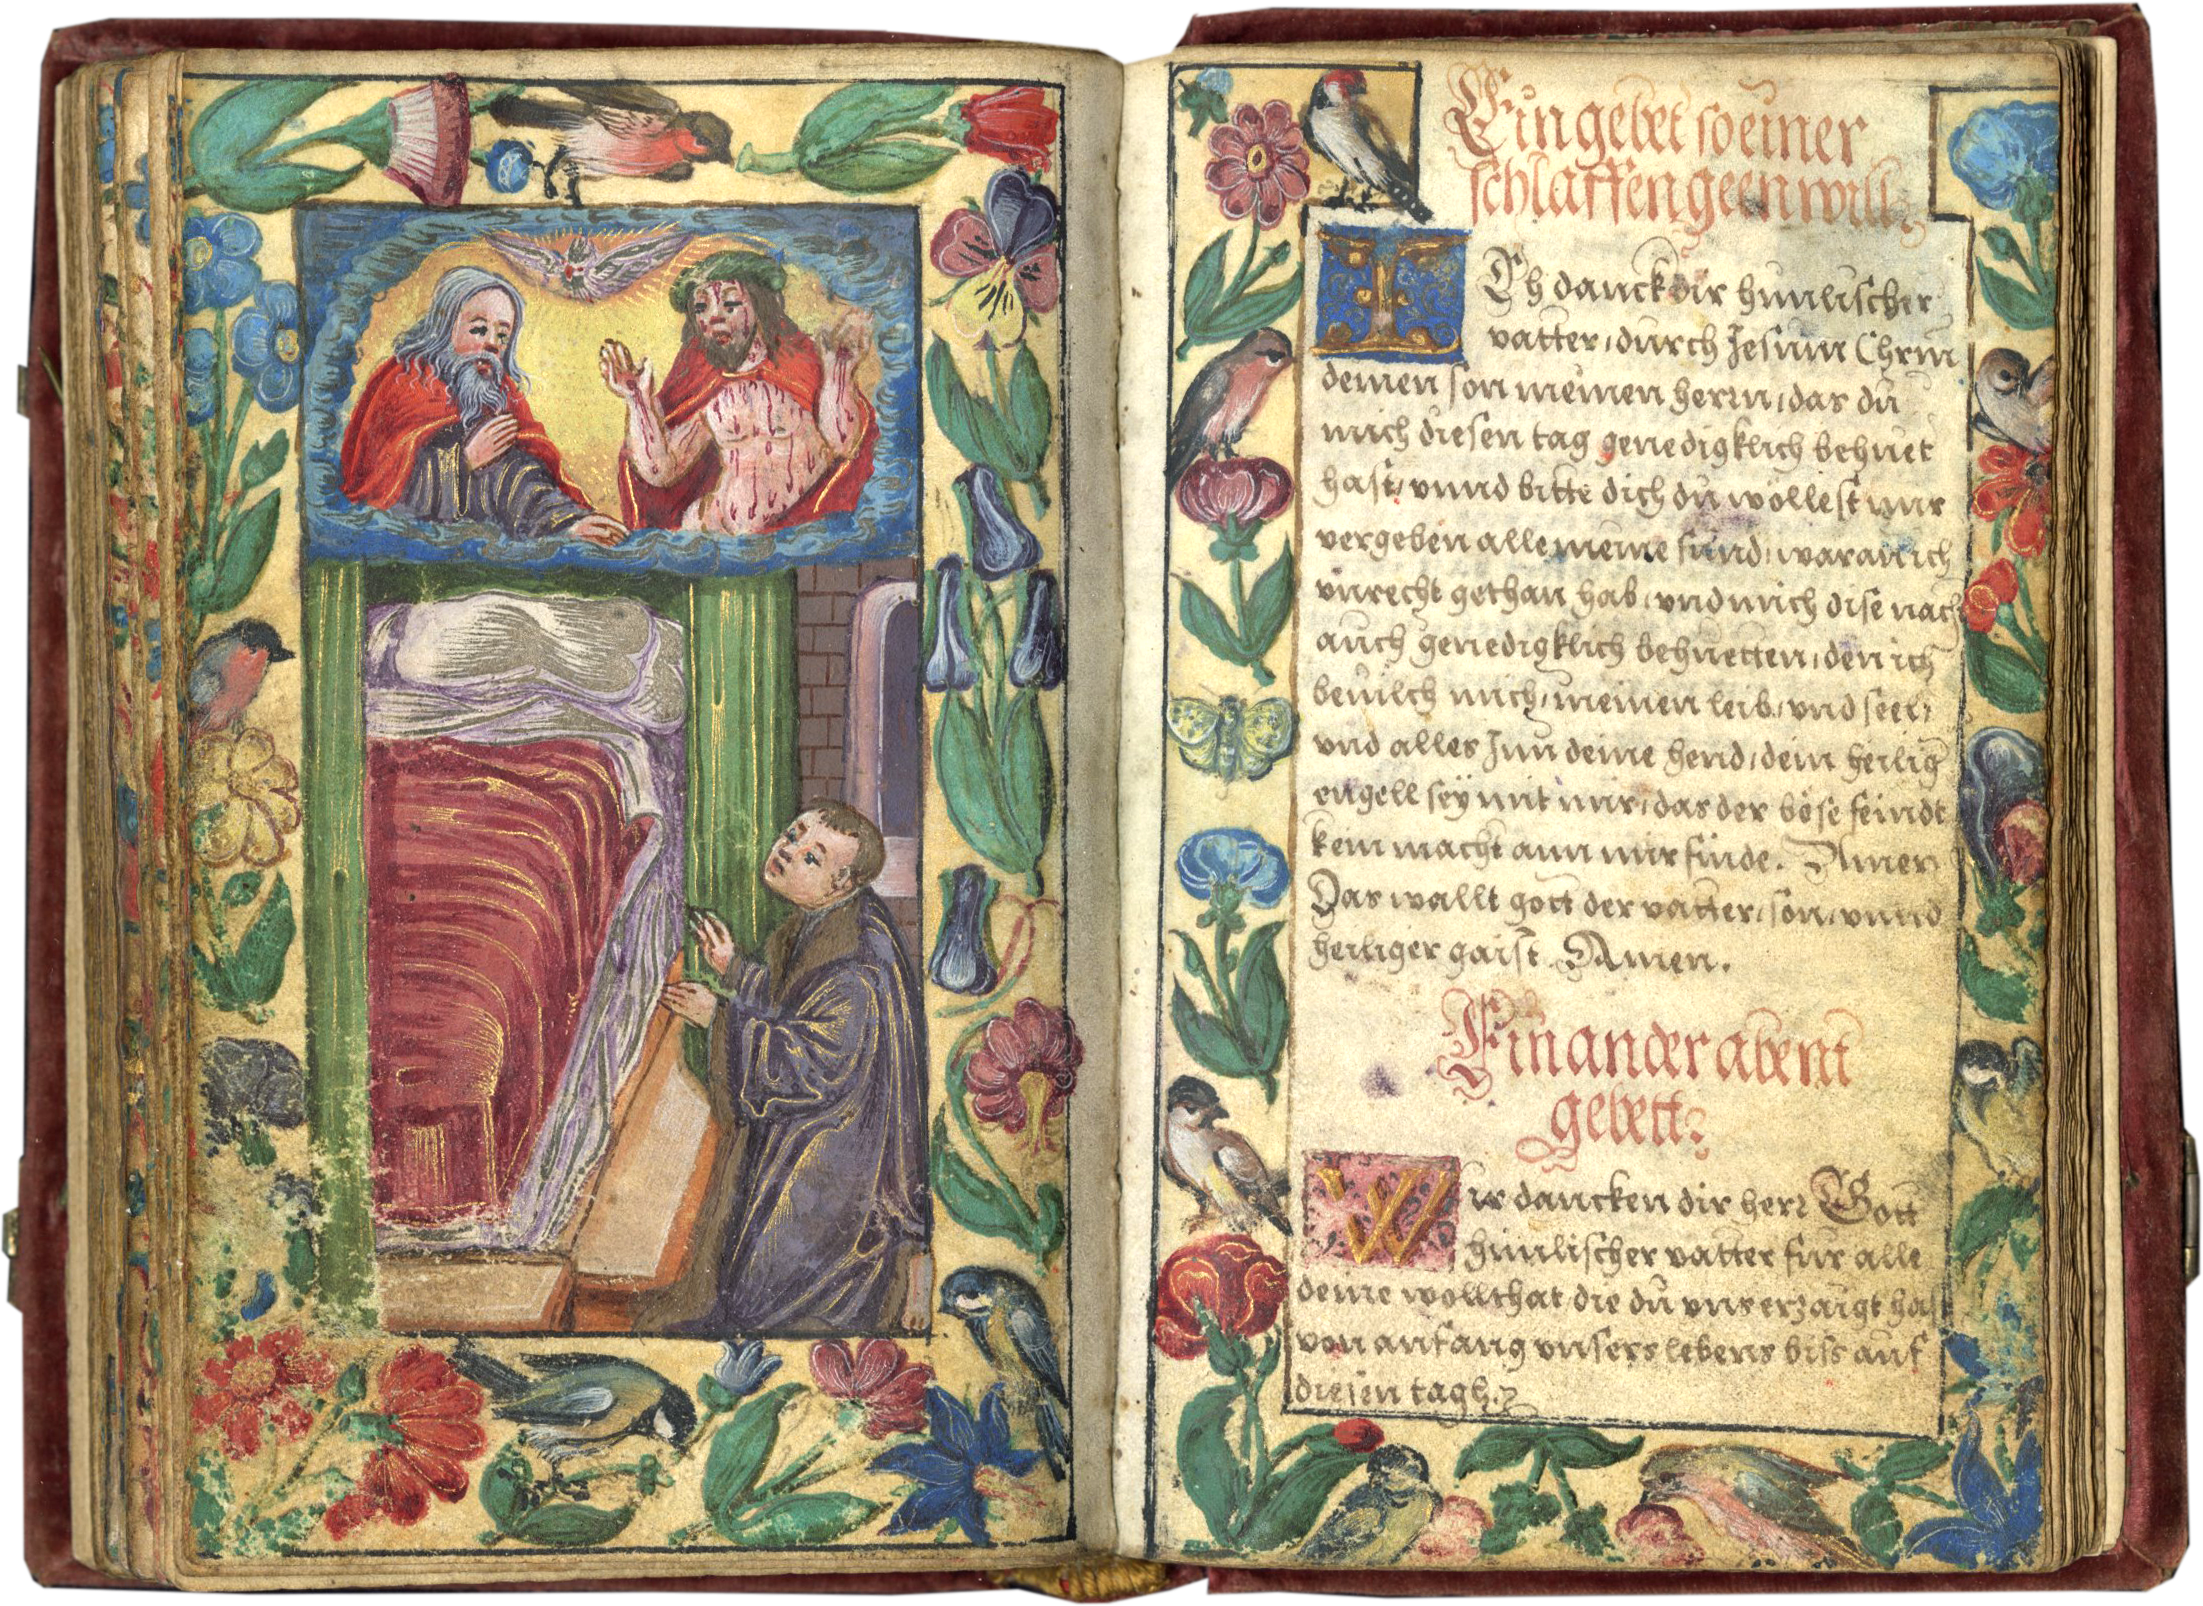 Ein gebet so einer
schlaffen geen will
Ich danck dir himlischer
vatter, durch Jesum Chrm
deinen son meinen herrn, das du
mich diesen tag genedigklich behuet
hast, vnnd bitte dich du wöllest mir
vergeben alle meine sünd, waran ich
vnrecht gethan hab, vnd mich dise nach
auch genedigklich behuetten, den ich
beuilch mich, meinen leib, vnd seel,
vnd alles Inn deine hend, dein heilig
engell seÿ mit mir, das der böse feindt
kein macht ann mir finde. Amen
Das wallt gott der vatter, son, vnnd
heiliger gaist. Amen.
Ein ander abent
gebett
Wir dancken dir herr Gott
himlischer vatter für alle
deine wollthat die du vns erzaigt hast
von anfang vnsers lebens biss auf
diesen tagh.